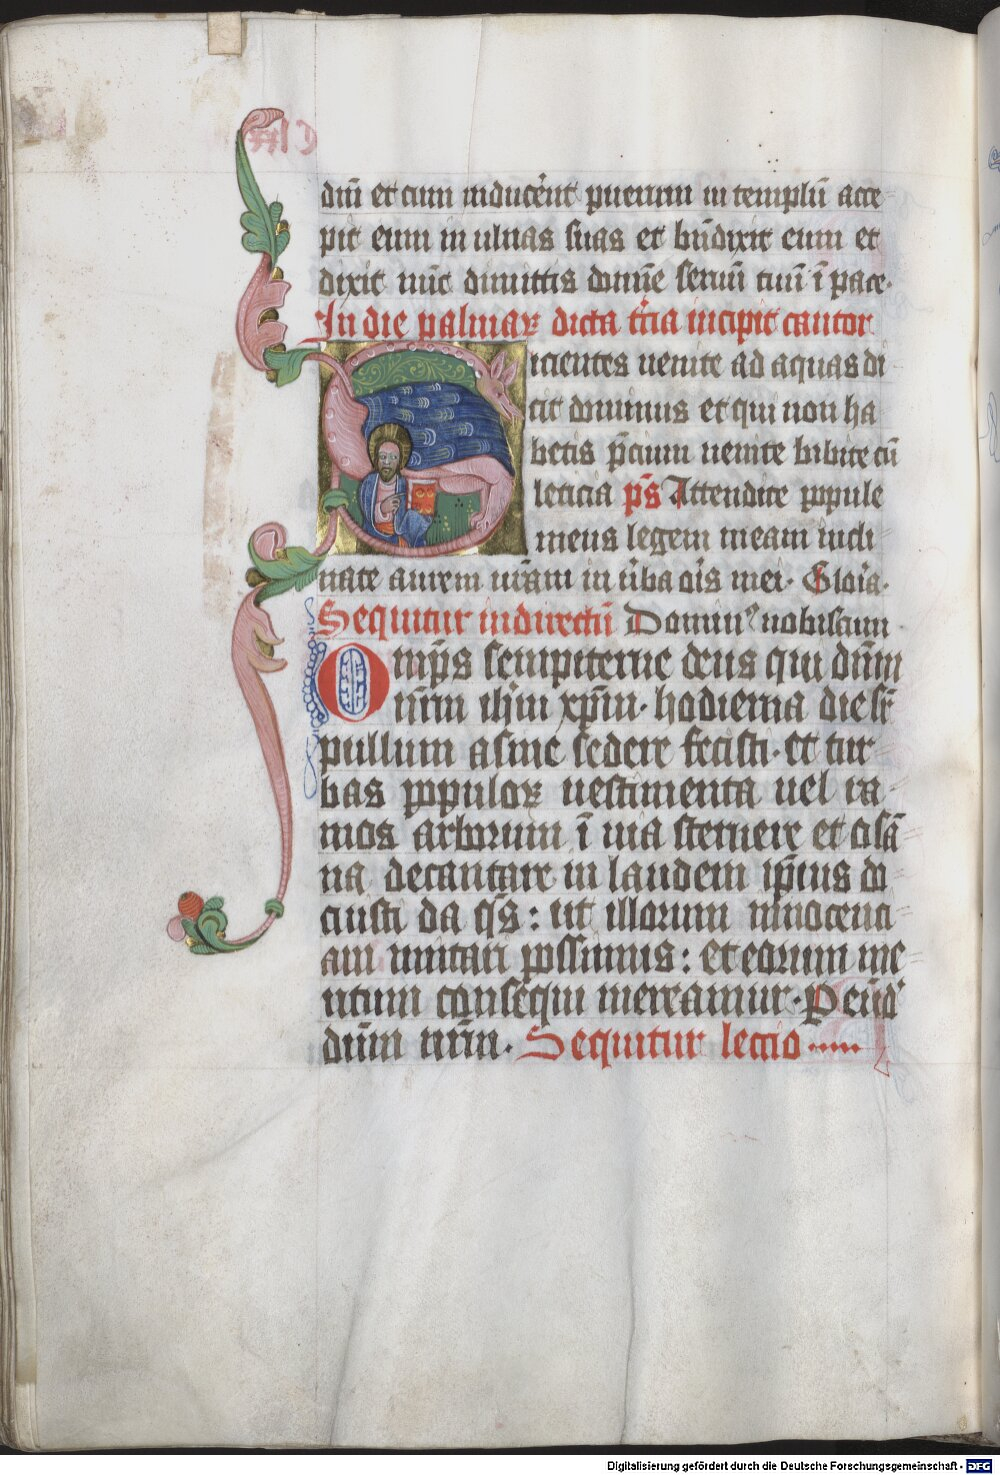 dm̄ et cum inducer̄ent puerum in templū acce
pit eum in ulnas suas et bn̄dixit eum et
dixit nūc dimittis domīe seruū tuū ī pace·
In die palmaꝝ dicta tt̄ia incipit cantor
Sicientes uenite ad aquas di
cit dominus et qui non ha
betis p̄cium uenite bibite cū
leticia ps̄ Attendite popule
meus legem meam incli
nate aurem ur̄am in ūba oīs mei· Gloīa·
Sequitur indirectū Dominꝰ nobiscum
Omp̄s sempiterne deus qui dn̄m
nr̄m ihm̄ xp̄m· hodierna die sr̄
pullum asine sedere fecisti· et tur
bas populoꝝ uestimenta uel ra
mos arborum ī uia sternere et osā
na decantare in laudem ip̄ius do
cuisti da qs̄: ut illorum innocenci
am imitari possimus: et eorum me
ritum consequi mereamur· P eūd
dn̄m nr̄m. Sequitur lectio·····
Digitalisierung gefördert durch die Deutsche Forschungsgemeinschaft - DFG